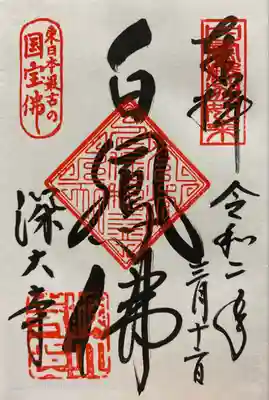 奉拝
令和二年
三月十一日
白鳳佛
東日本最古の
国宝佛
深大寺